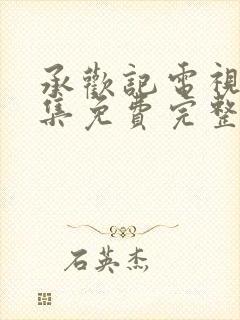 承歡記電視
集免費完整
石英杰